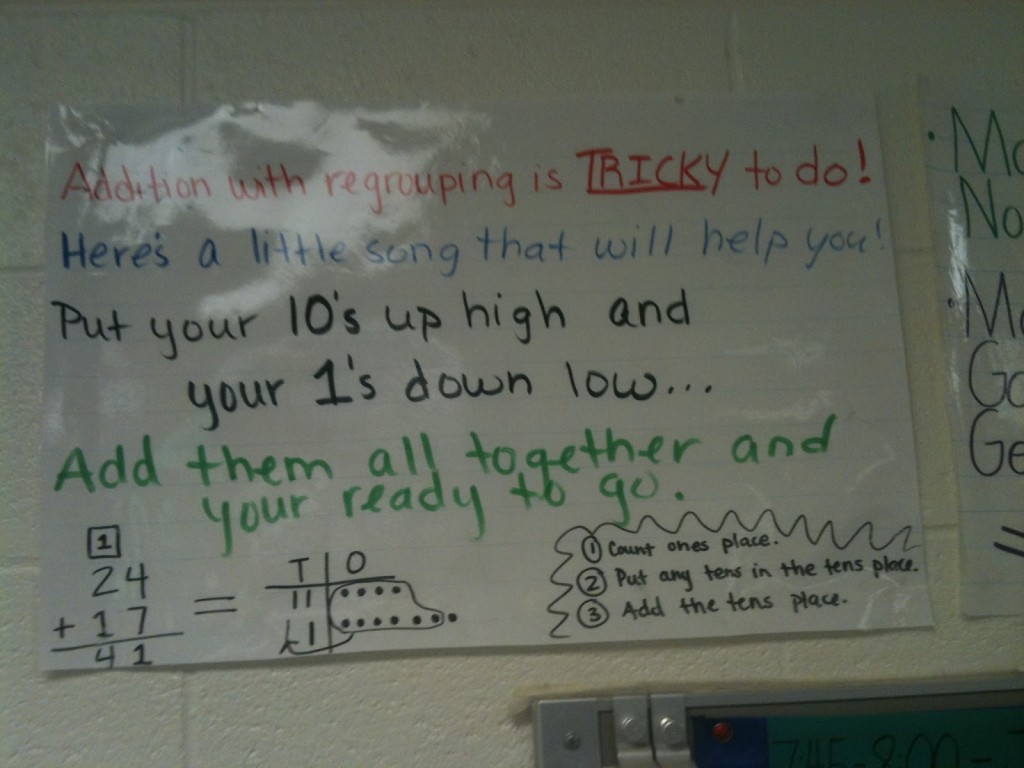 Addition with regrouping is TRICKY to do!
Here's a little song that will help you!
Put your 10's up high and
your 1's down low...
Add them all together and
your ready to go.
1
24
+ 17
41
=
T O
① Count ones place.
② Put any tens in the tens place.
③ Add the tens place.
• Ma
No
• Ma
Go
Ge
=
7:45-8:00-